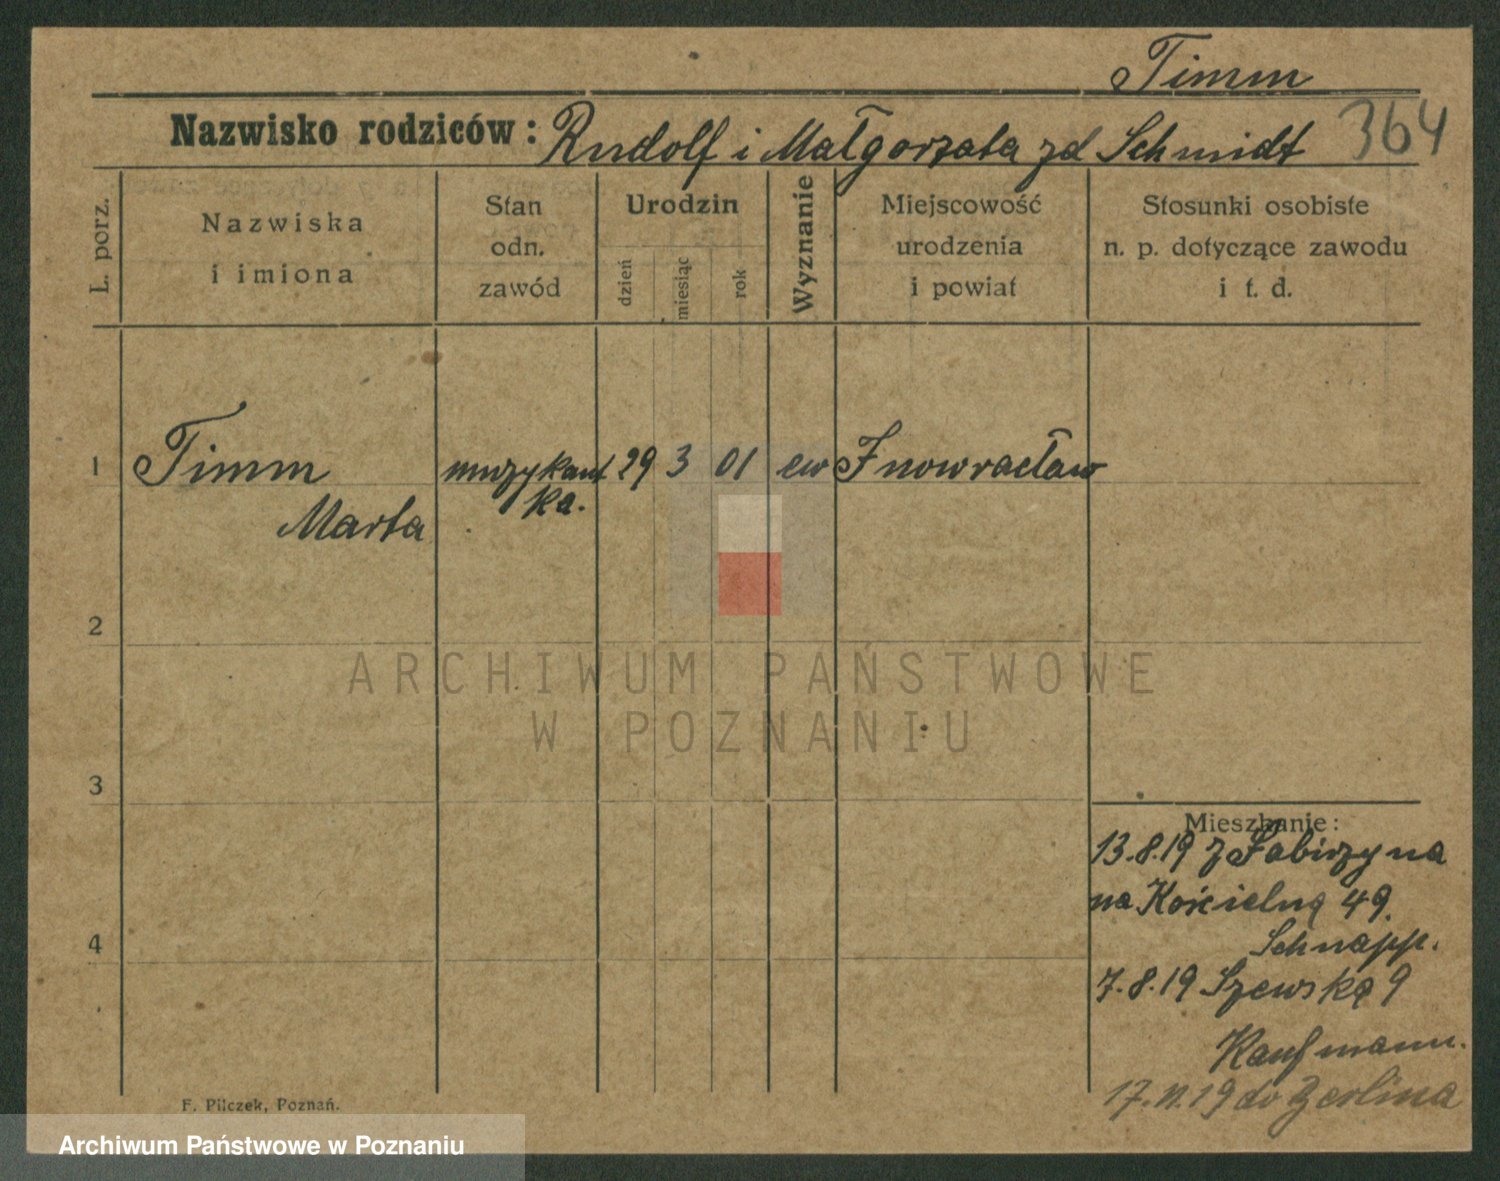 Timm
Nazwisko rodziców: Rudolf i Małgorzata zd Schmidt 364
L. porz.
Nazwiska
i imiona
Stan
odn.
zawód
Urodzin
dzień
miesiąc
rok
Wyznanie
Miejscowość
urodzenia
i powiat
Stosunki osobiste
n. p. dotyczące zawodu
i t. d.
1 Timm muzykant 29 3 01 ew Inowracław
ka.
Marta
2
3
4
Mieszkanie:
13.8.19 z
na Kościelną 49.
Schnapp.
7.8.19 Szewską 9
Kaufmann.
17.11.19 do Berlina
F. Pilczek, Poznań.
ARCHIWUM PAŃSTWOWE
W POZNANIU
Archiwum Państwowe w Poznaniu